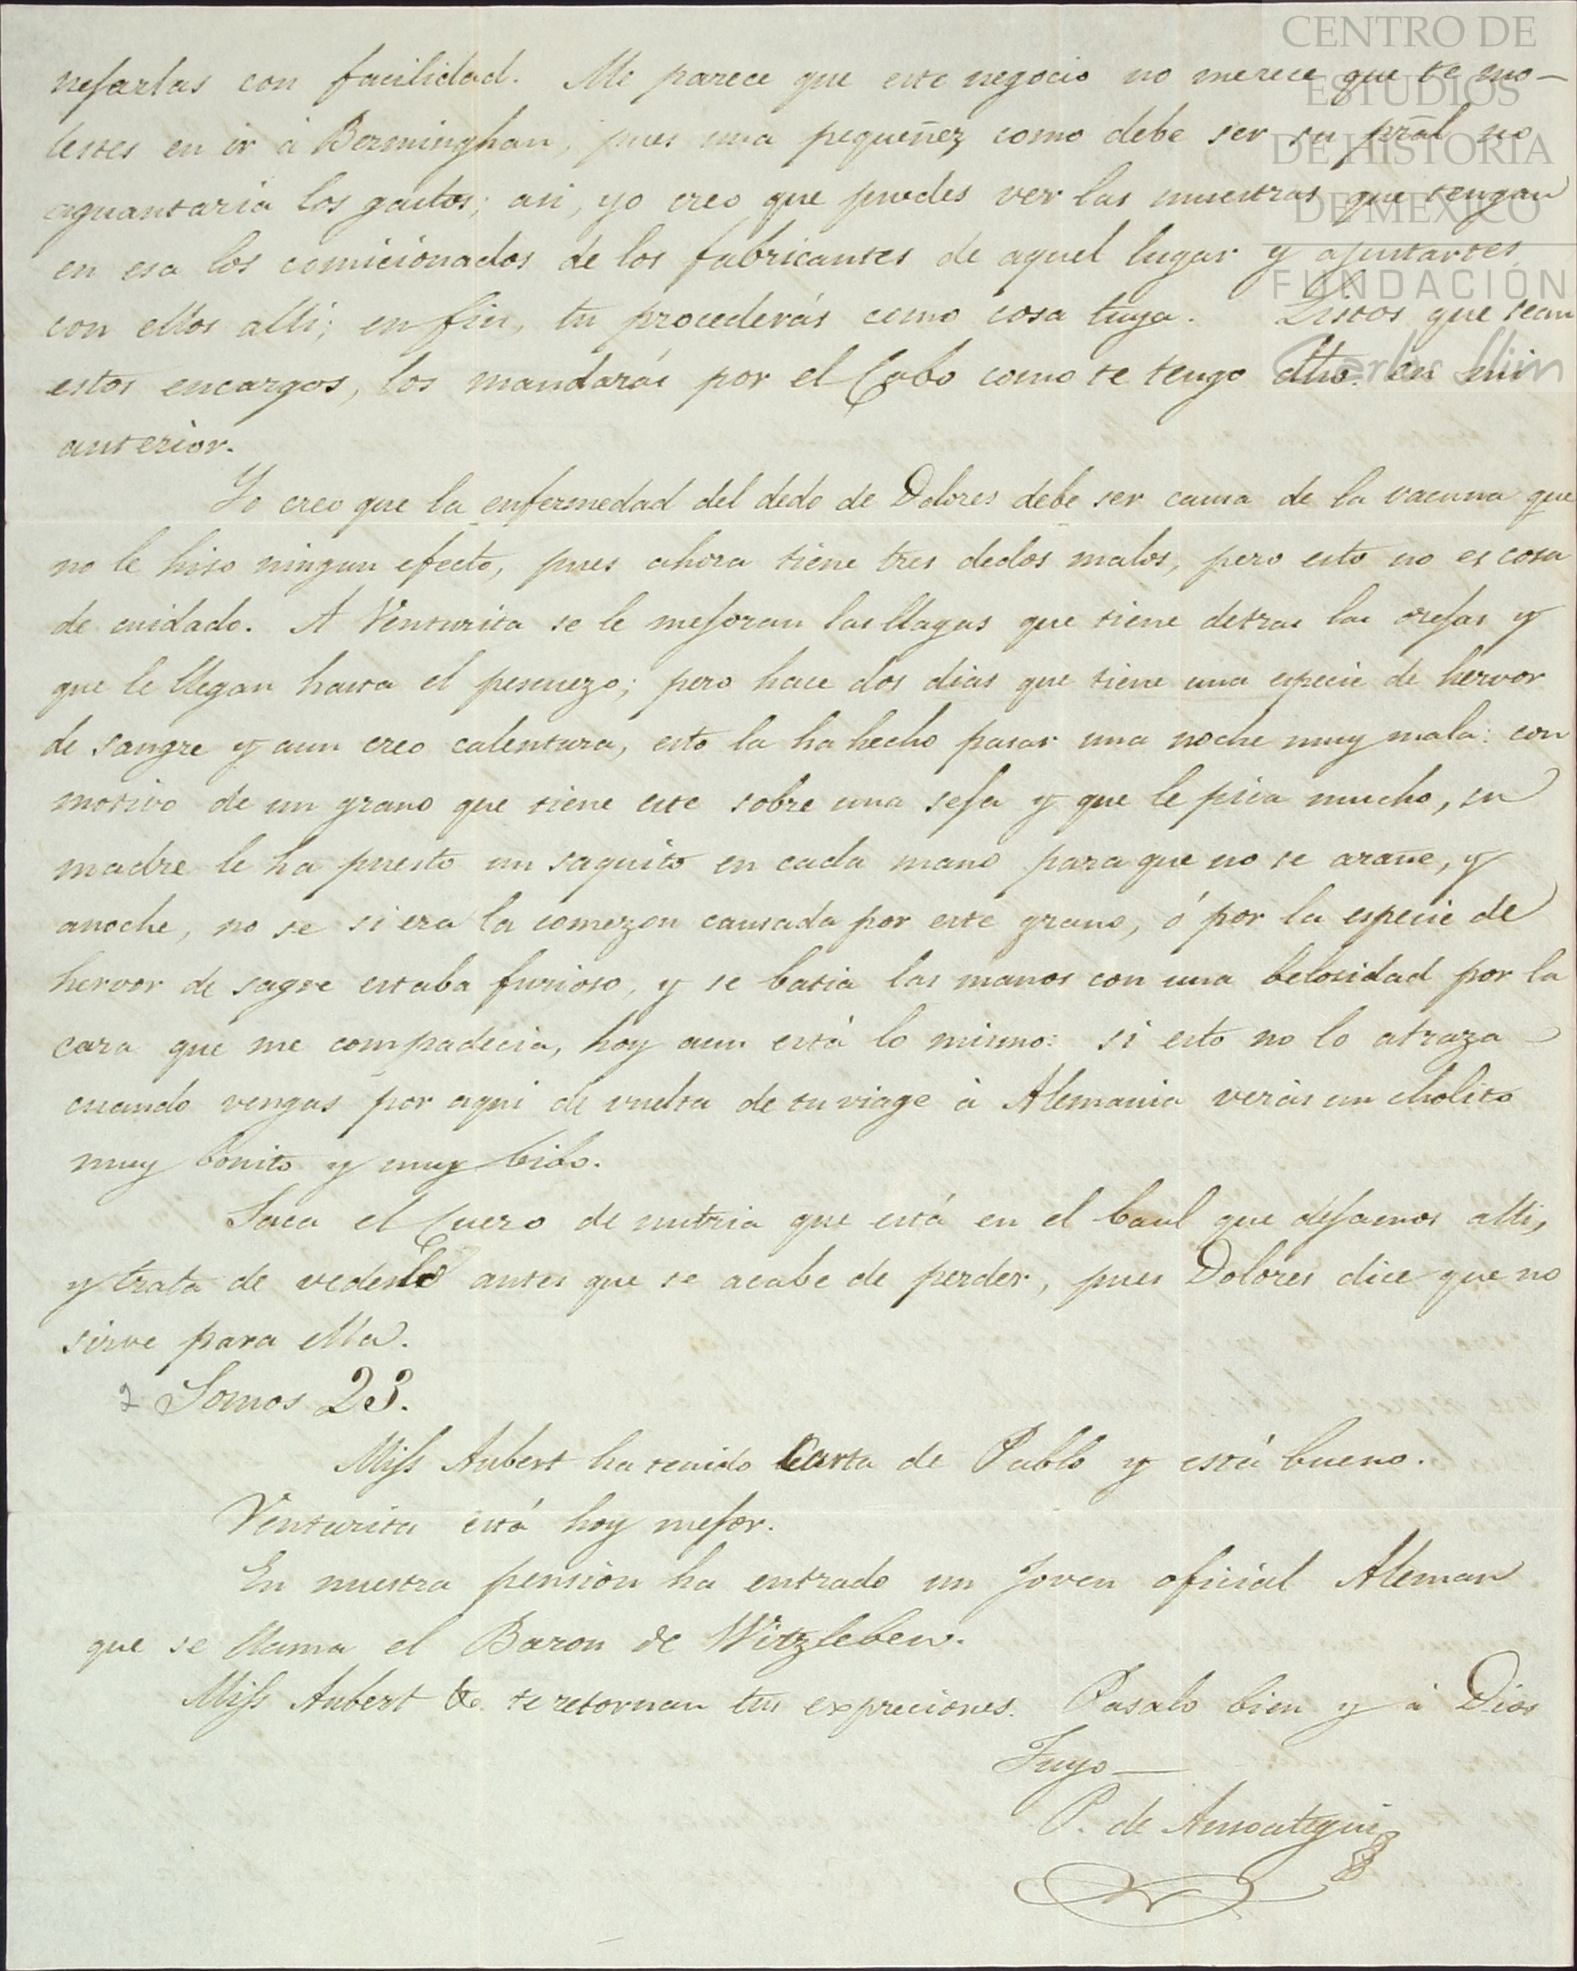 CENTRO DE
ESTUDIOS
DE HISTORIA
DE MEXICO
FUNDACIÓN
Carlos Slim
nejarlas con facilidad. Me parece que este negocio no merece que te mo-
lestes en ir á Bermingham, pues una pequeñez como debe ser su pral no
aguantaria los gastos; asi, yo creo que puedes ver las muestras que tengan
en esa los comicionados de los fabricantes de aquel lugar y ajustartes
con ellos alli; en fin, tu procederás como cosa tuya. Listos que sean
estos encargos, los mandarás por el Cabo como te tengo dho. en mi
anterior.
Yo creo que la enfermedad del dedo de Dolores debe ser causa de la vacuna que
no le hiso ningun efecto, pues ahora tiene tres dedos malos, pero esto no es cosa
de cuidado. A Venturita se le mejoran las llagas que tiene detras las orejas y
que le llegan hasta el pescuezo; pero hace dos dias que tiene una especie de hervor
de sangre y aun creo calentura, esto la ha hecho pasar una noche muy mala: con
motivo de un grano que tiene este sobre una seja y que le pica mucho, su
madre le ha puesto un saquito en cada mano para que no se arañe, y
anoche, no se si era la comezon causada por este grano, ó por la especie de
hervor de sagre estaba furioso, y se batia las manos con una belosidad por la
cara que me compadecia, hoy aun está lo mismo: si esto no lo atraza
cuando vengas por aqui de vuelta de tu viage á Alemania verás un cholito
muy bonito y muy bibo.
Saca el Cuero de nutria que está en el baul que dejamos alli,
y trata de vederlo antes que se acabe de perder, pues Dolores dice que no
sirve para ella.
Somos 23.
Miss Aubert ha tenido Carta de Pablo y está bueno.
Venturita está hoy mejor.
En nuestra pension ha entrado un Joven oficial Aleman
que se llama el Baron de Witzleben.
Miss Aubert &c. te retornan tus expreciones. Pasalo bien y á Dios
Tuyo—
P. de Ansoategui